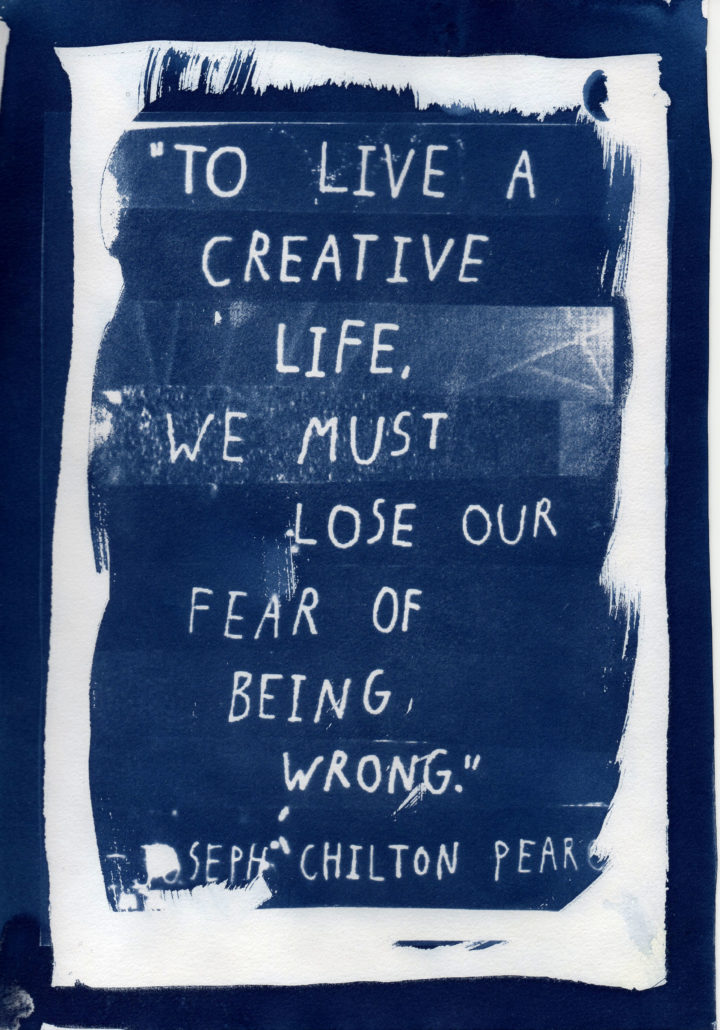 "TO LIVE A
CREATIVE
LIFE,
WE MUST
LOSE OUR
FEAR OF
BEING,
WRONG."
- JOSEPH CHILTON PEARC